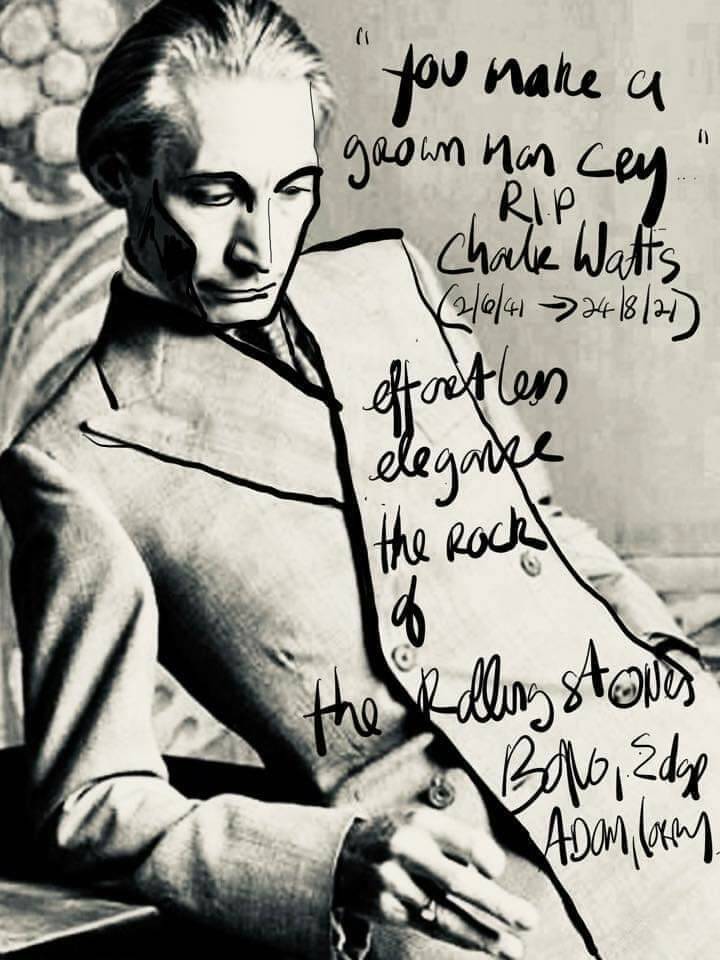 "you make a
grown man cry..."
R.I.P
Charlie Watts
(2/6/41 → 24/8/21)
effortless
elegance
the ROCK
of
the Rolling Stones
BONO, Edge
ADAM, Larry